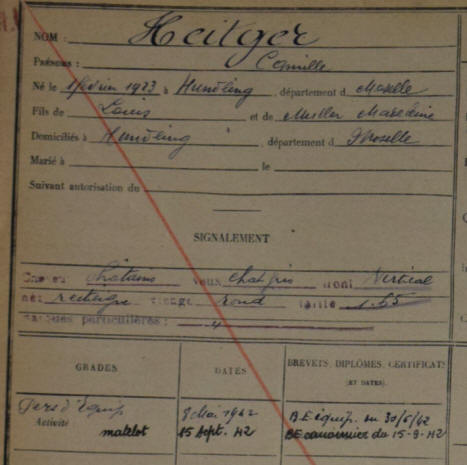 NOM : Heitger
PRÉNOMS : Camille
Né le 1 février 1923 à Hundling, département d Moselle
Fils de Louis et de Muller Madeleine
Domiciliés à Hundling, département d Moselle
Marié à le
Suivant autorisation du
SIGNALEMENT
Cheveux Châtains yeux chat gris front Vertical
nez rectiligne visage rond taille 1.65
Marques particulières :
GRADES DATES BREVETS, DIPLÔMES, CERTIFICATS
(ET DATES).
2 Mai 1942 B.E équip. du 30/6/42
Activité matelot 15 Sept. 42 BE canonnier du 15-9-42